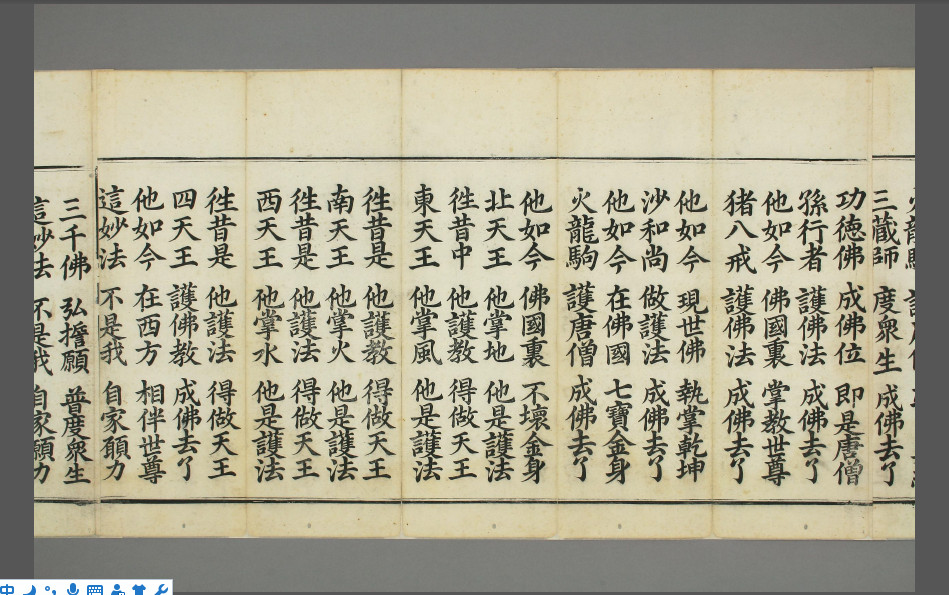 三藏師 度衆生 成佛去了
功德佛 成佛位 即是唐僧
孫行者 護佛法 成佛去了
他如今 佛國裏 掌教世尊
猪八戒 護佛法 成佛去了
他如今 現世佛 執掌乾坤
沙和尚 做護法 成佛去了
他如今 在佛國 七寶金身
火龍駒 護唐僧 成佛去了
他如今 佛國裏 不壞金身
北天王 他掌地 他是護法
徃昔中 他護教 得做天王
東天王 他掌風 他是護法
徃昔是 他護教 得做天王
南天王 他掌火 他是護法
徃昔是 他護法 得做天王
西天王 他掌水 他是護法
徃昔是 他護法 得做天王
四天王 護佛教 成佛去了
他如今 在西方 相伴世尊
這妙法 不是我 自家願力
三千佛 弘誓願 普度衆生
這妙法 不是我 自家願力
中